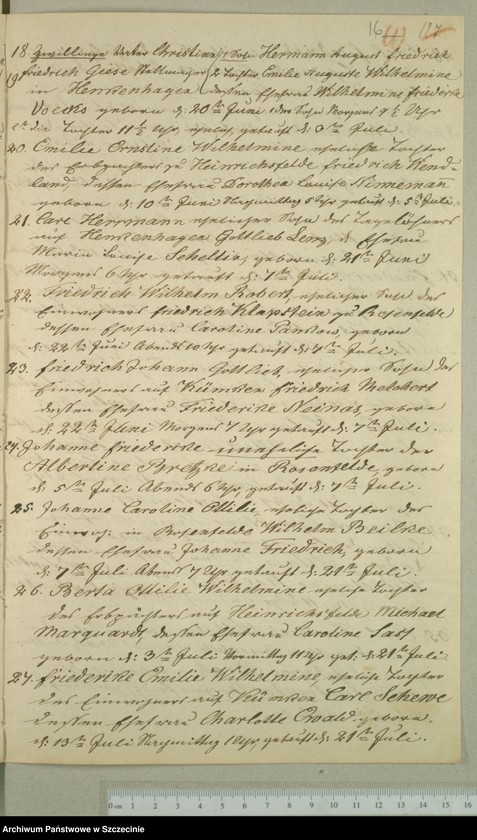 16 (4) 127
18. Zwillinge Vater Christian 1 Sohn Hermann August Friedrich
19 Friedrich Giese 2 Tochter Emilie Auguste Wilhelmine
in Henkenhagen dessen Ehefrau Wilhelmine Friederike
geboren d: 20ten Juni 1 der Sohn Morgens Uhr
die Tochter 11½ Uhr, ehelich, getauft d: ten Juli.
20. Emilie Ernstine Wilhelmine eheliche Tochter
des Erbpächters zu Heinrichsfelde Friedrich Wend-
land, dessen Ehefrau Dorothea Louise
geboren d: 10ten Juni Nachmittag 5 Uhr getauft d: 5ten Juli.
21. Carl Herrmann ehelicher Sohn des Tagelöhners
auf Henkenhagen Gottlieb Lenz, d. Ehefrau
Maria Louise geboren d: 21ten Juni
Morgens 6 Uhr getauft d: 7ten Juli.
22. Friedrich Wilhelm Robert, ehelicher Sohn des
Einwohners Friedrich Klapstein zu Rosenfelde
dessen Ehefrau Caroline geboren
d: 22ten Juni Abends 10 Uhr getauft d: 7ten Juli.
23. Friedrich Johann Gottlieb, ehelicher Sohn des
Einwohners auf Friedrich Melchert
dessen Ehefrau Friederike Neinas, geboren
d: 22ten Juni Morgens 7 Uhr getauft d: 7ten Juli.
24. Johanne Friedericke uneheliche Tochter der
Albertine in Rosenfelde, geboren
d: 5ten Juli Abends 6 Uhr, getauft d: 7ten Juli.
25. Johanne Caroline Ottilie eheliche Tochter des
Einwoh: in Rosenfelde Wilhelm Beilke
dessen Ehefrau Johanne Friedrich, geboren
d: 7ten Juli Abend 7 Uhr getauft d: 21ten Juli.
26. Berta Ottilie Wilhelmine eheliche Tochter
des Erbpächters auf Heinrichsfelde Michael
Marquardt, dessen Ehefrau Caroline Sass
geboren d: 3ten Juli Vormittag 11 Uhr get: d: 21ten Juli
27. Friederike Emilie Wilhelmine, eheliche Tochter
des Einwohners auf Carl Schewe
dessen Ehefrau Charlotte Ewald geboren
d: 13ten Juli Nachmittag 1 Uhr, getauft d: 21ten Juli.
0 cm 1 2 3 4 5 6 7 8 9 10 11 12 13 14 15 16
Archiwum Państwowe w Szczecinie